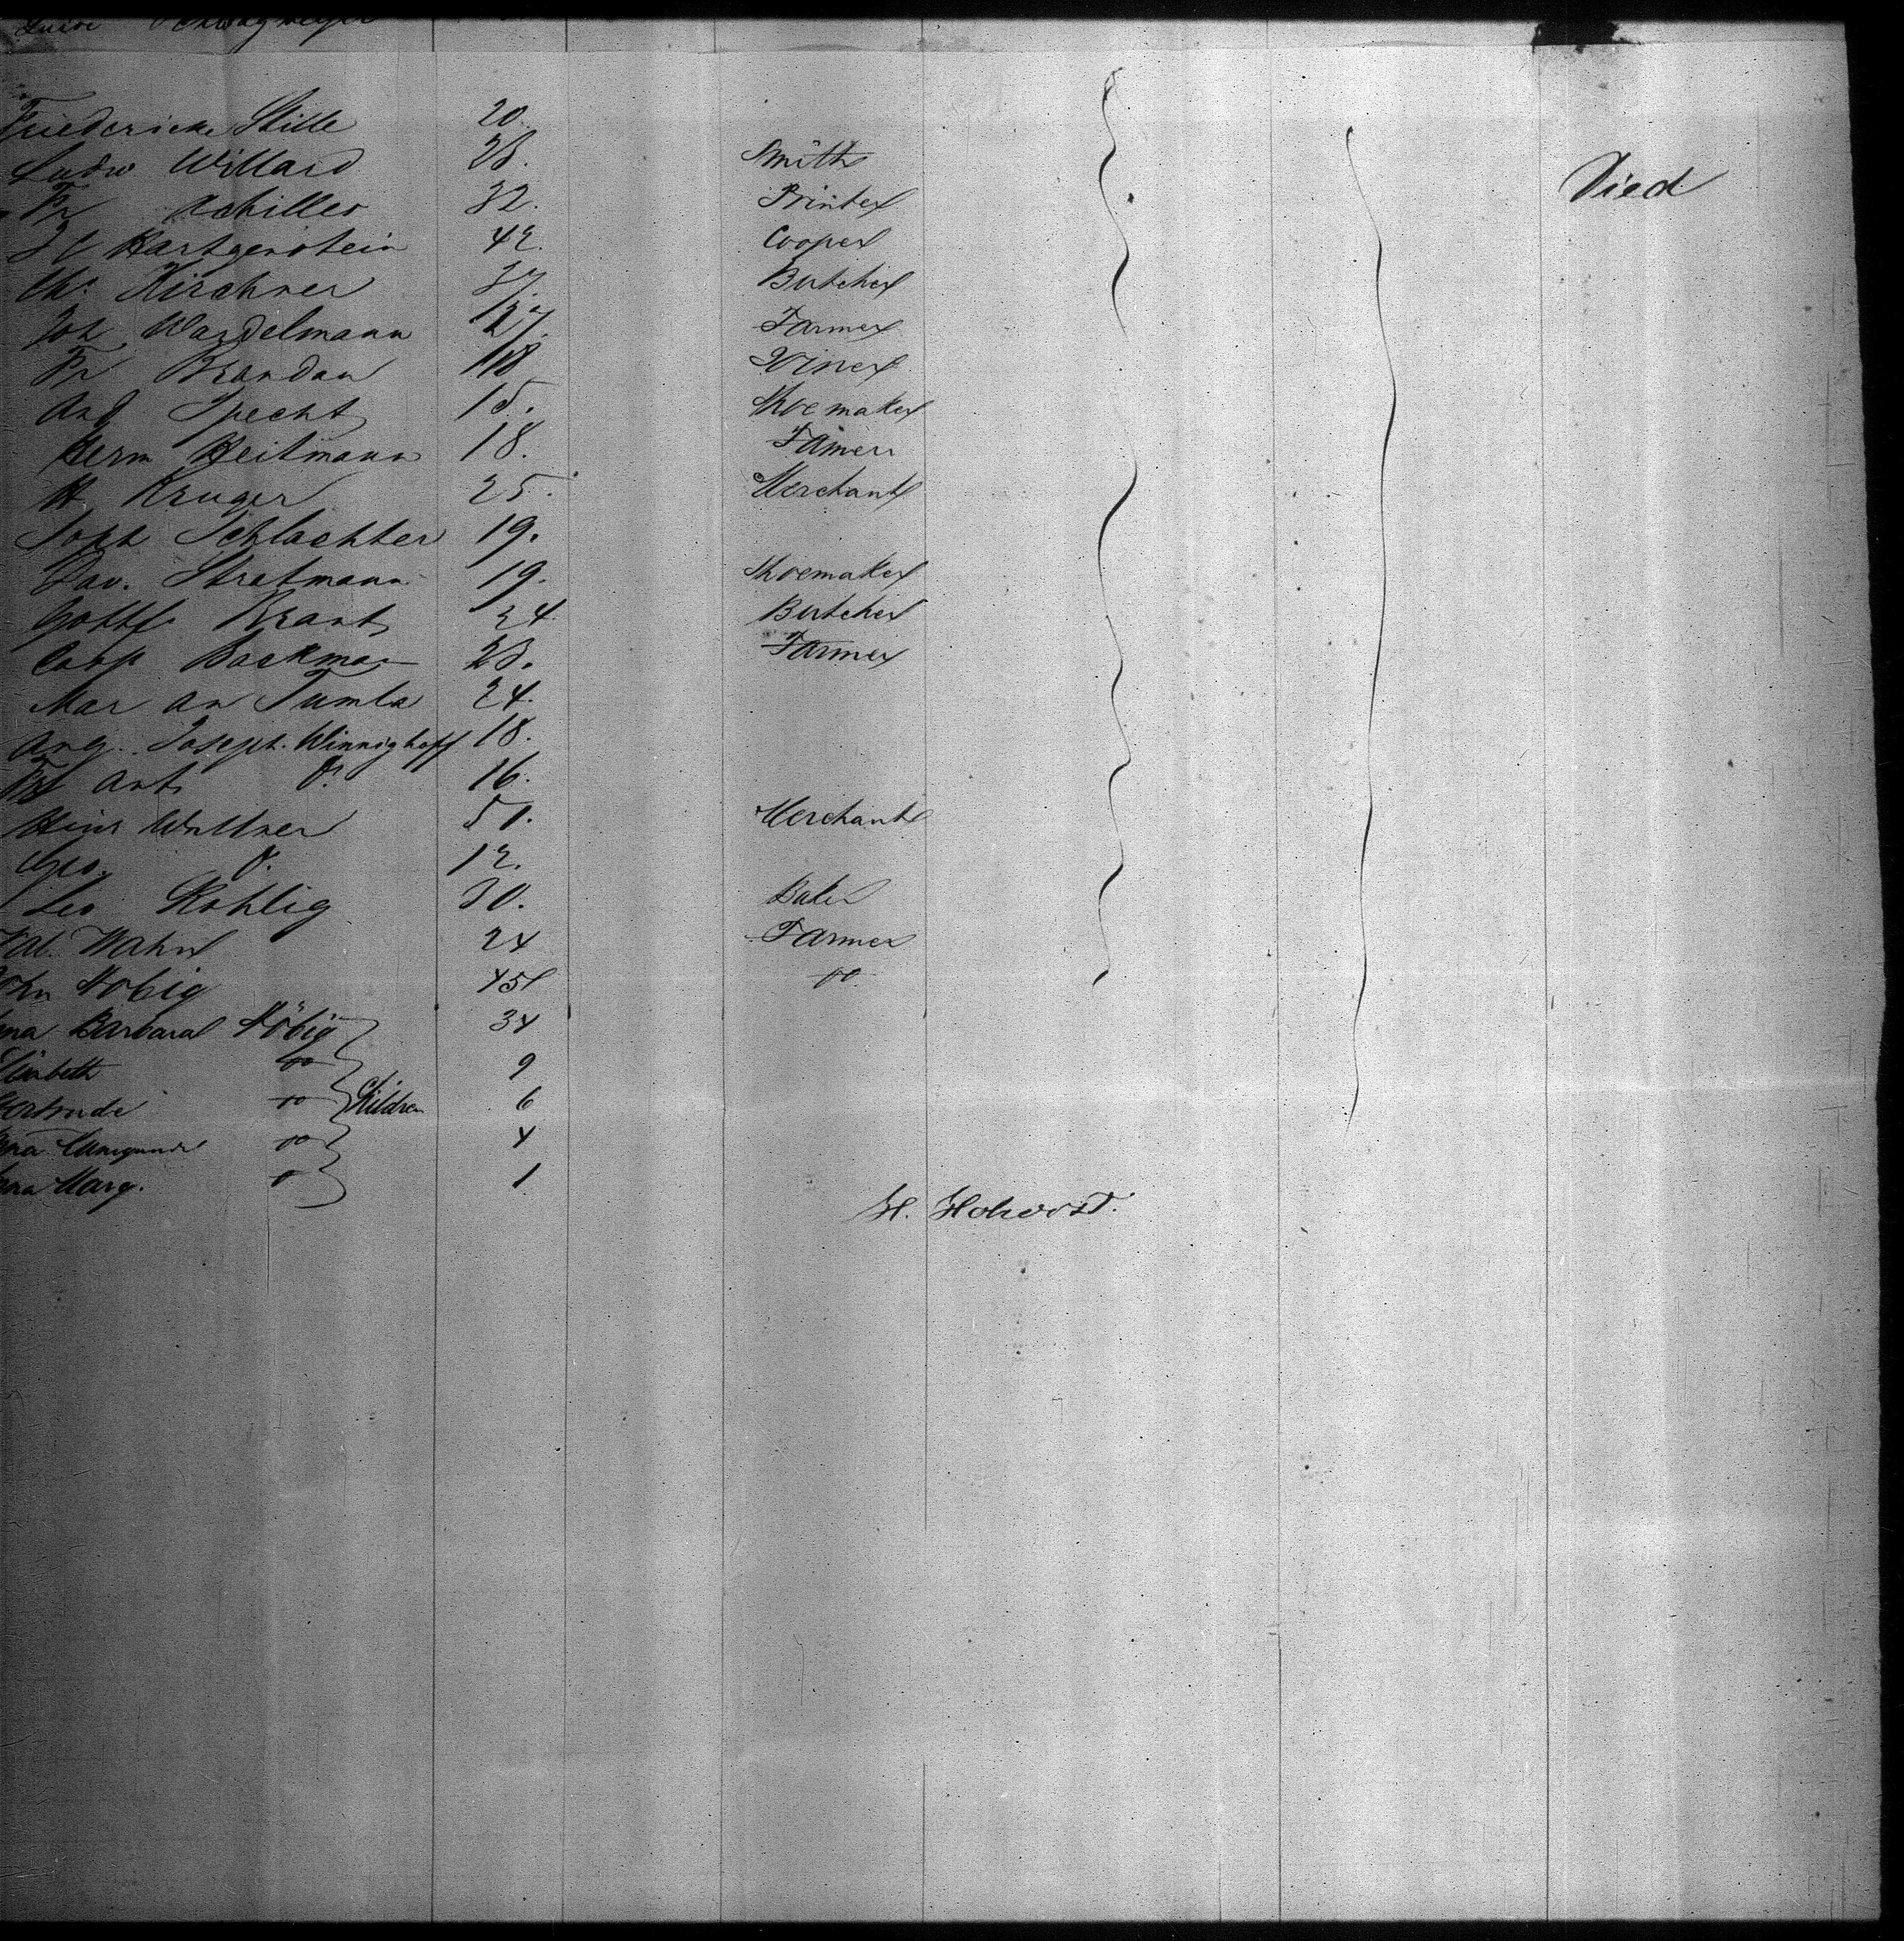 Friedericke Stille 20.
Ludw Willard 23. Smith Died
Fr Achilles 32. Printer
Hartgenstein 42. Cooper
Chr Kirchner 37. Butcher
Joh Wandelmann 27. Farmer
Fr Brandau 18 Viner
And Specht 15. Shoemaker
Herm Heitmann 18. Famer
H. Kruger 25. Merchant
Soph Schlachter 19.
Dav. Stratmann 19. Shoemaker
Gottf Brant 24 Butcher
Casp Backman 23. Farmer
Mar an Tumla 24.
Ang. Joseph. Winnighoff 18.
Fr Ant do 16.
Heinr Wullner 51. Merchant
Geo. do 12.
Leo Rohlig 30. Baker
Val. Hahn 24 Farmer
John Höbig 45 do
na Barbara Höbig 34
Elisabeth do 9
Gertrude do Children 6
na Cunigunde do 4
na Marg. do 1
H. Hohorst.